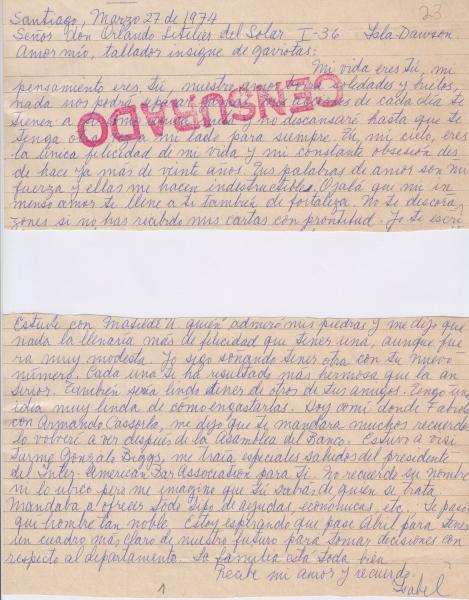 23
Santiago, Marzo 27 de 1974
Señor Don Orlando Letelier del Solar I-36 Isla Dawson.
Amor mío, tallador insigne de gaviotas:
Mi vida eres Tú, mi
pensamiento eres, Tú, nuestro amor borra soledades y hielos,
nada nos podrá separar, todas mis acciones de cada día te
tienen a como y no descansaré hasta que te
tenga otra a mi lado para siempre. Tú, mi cielo, eres
la única felicidad de mi vida y mi constante obsesión des
de hace ya más de veinte años. Tus palabras de amor son mi
fuerza y ellas me hacen indestructibles. Ojalá que mi in
menso amor te llene a ti también de fortaleza. No te descora
zones si no has recibido mis cartas con prontitud. Yo te escri
CENSURADO
Estuve con "a quien" admiró mis piedras y me dijo que
nada la llenaría más de felicidad que tener una, aunque fue
ra muy modesta. Yo sigo soñando tener otra con tu nuevo
número. Cada una te ha resultado más hermosa que la an
terior. También sería lindo tener de otros de tus amigos. Tengo una
idea muy linda de como engastarlas. Hoy comí donde
con Armando Cassorla, me dijo que te mandara muchos recuerdos
lo volveré a ver después de la Asamblea del Banco. Estuvo a visi
tarme Gonzalo Biggs, me traía especiales saludos del presidente
del Inter-American Bar Association para ti. No recuerdo su nombre
ni lo ubico pero me imagino que tú sabrás de quien se trata.
Mandaba a ofrecer todo tipo de ayudas, económicas, etc. Te pasas
que hombre tan noble. Estoy esperando que pase Abril para tener
un cuadro más claro de nuestro futuro para tomar decisiones con
respecto al departamento. La familia está toda bien
Recibe mi amor y recuerdo.
Isabel
1